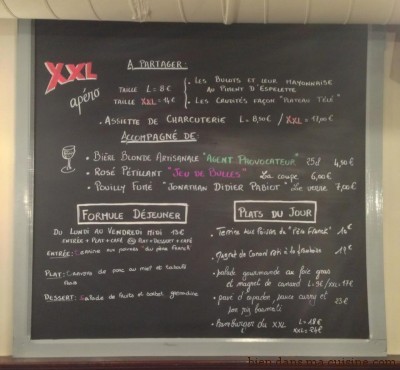 XXL
apéro
A PARTAGER:
TAILLE L = 8€
TAILLE XXL = 14€
- LES BULOTS ET LEUR MAYONNAISE
AU PIMENT D'ESPELETTE
- LES CRUDITÉS FAÇON "PLATEAU TÉLÉ"
- ASSIETTE DE CHARCUTERIE L = 8,50 / XXL = 17,00€
ACCOMPAGNÉ DE:
• BIÈRE BLONDE ARTISANALE "AGENT PROVOCATEUR" 25cl 4,50€
• ROSÉ PÉTILLANT "JEU DE BULLES" La coupe 6,00€
• POUILLY FUMÉ "JONATHAN DIDIER PABIOT" Le verre 7,00€
FORMULE DÉJEUNER
DU LUNDI AU VENDREDI MIDI 13€
ENTRÉE + PLAT + CAFÉ OU PLAT + DESSERT + CAFÉ
ENTRÉE: "du père Franck"
PLAT: de porc au miel et
DESSERT: Salade de fruits et sorbet grenadine
PLATS DU JOUR
• Terrine aux Poivres du "Père Franck" 10€
• Magret de Canard rôti à la 17€
• salade gourmande au foie gras
et magret de canard L = 9€ / XXL = 17€
• pavé d'espadon, sauce curry et
riz 23€
• Hamburger du XXL L = 18€
XXL = 24€
bien dans ma cuisine.com